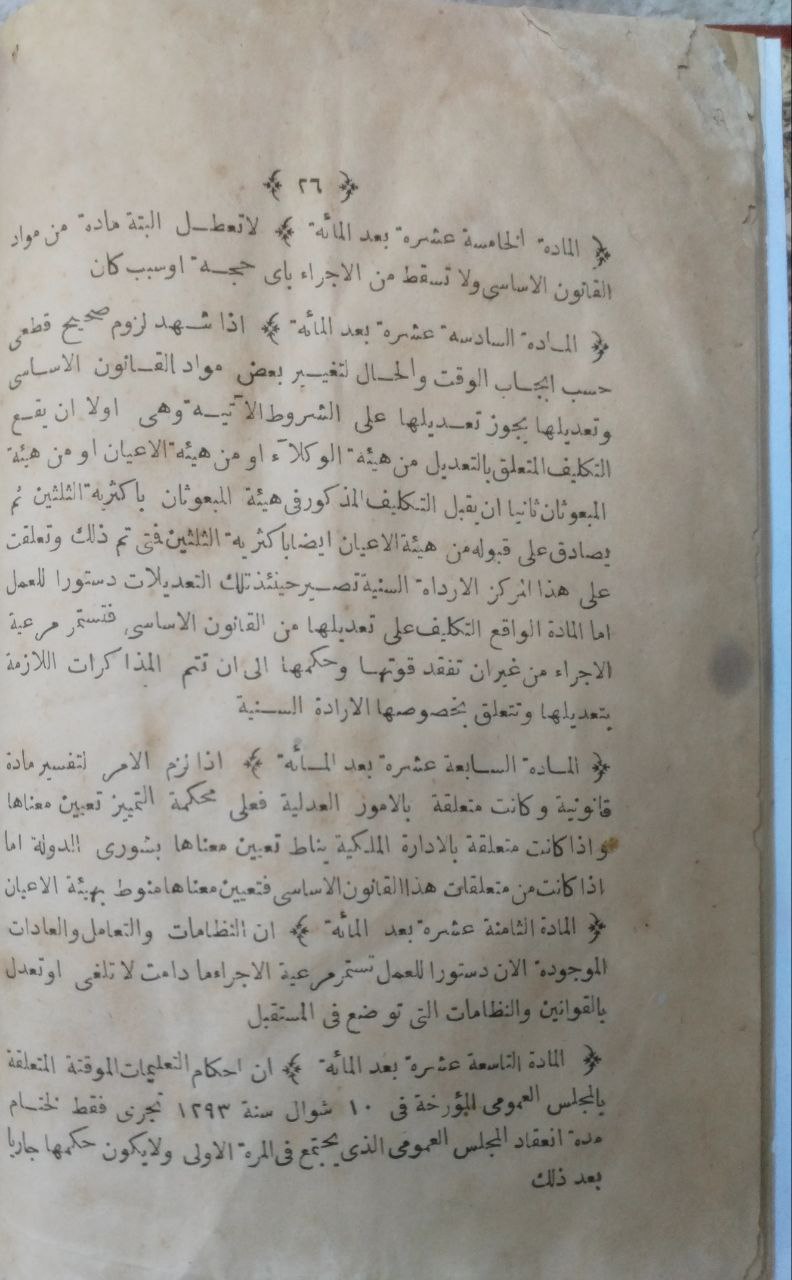 ﴿ ٢٦ ﴾
﴿ المادة الخامسة عشرة بعد المائة ﴾ لاتعطل البتة مادة من مواد
القانون الاساسى ولا تسقط من الاجراء باى حجة اوسبب كان
﴿ المادة السادسه عشرة بعد المائة ﴾ اذا شهد لزوم صحيح قطعى
حسب ايجاب الوقت والحال لتغيير بعض مواد القانون الاساسى
وتعديلها يجوز تعديلها على الشروط الآتية وهى اولا ان يقع
التكليف المتعلق بالتعديل من هيئة الوكلآء او من هيئة الاعيان او من هيئة
المبعوثان ثانيا ان يقبل التكليف المذكور فى هيئة المبعوثان باكثرية الثلثين ثم
يصادق على قبوله من هيئة الاعيان ايضا باكثرية الثلثين فتى تم ذلك وتعلقت
على هذا المركز الارداة السنية تصير حينئذ تلك التعديلات دستورا للعمل
اما المادة الواقع التكليف على تعديلها من القانون الاساسى فتستمر مرعية
الاجراء من غيران تفقد قوتها وحكمها الى ان تتم المذاكرات اللازمة
بتعديلها وتتعلق بخصوصها الارادة السنية
﴿ المادة السابعة عشرة بعد المائة ﴾ اذا لزم الامر لتفسير مادة
قانونية وكانت متعلقة بالامور العدلية فعلى محكمة التمييز تعيين معناها
واذا كانت متعلقة بالادارة الملكية يناط تعيين معناها بشورى الدولة اما
اذا كانت من متعلقات هذا القانون الاساسى فتعيين معناها منوط بهيئة الاعيان
﴿ المادة الثامنة عشرة بعد المائة ﴾ ان النظامات والتعامل والعادات
الموجودة الان دستورا للعمل تستمر مرعية الاجراء ما دامت لا تلغى اوتعدل
بالقوانين والنظامات التى توضع فى المستقبل
﴿ المادة التاسعة عشرة بعد المائة ﴾ ان احكام التعليمات الموقتة المتعلقة
بالمجلس العمومى المؤرخة فى ١٠ شوال سنة ١٢٩٣ تجرى فقط لختام
مدة انعقاد المجلس العمومى الذى يجتمع فى المرة الاولى ولايكون حكمها جاريا
بعد ذلك